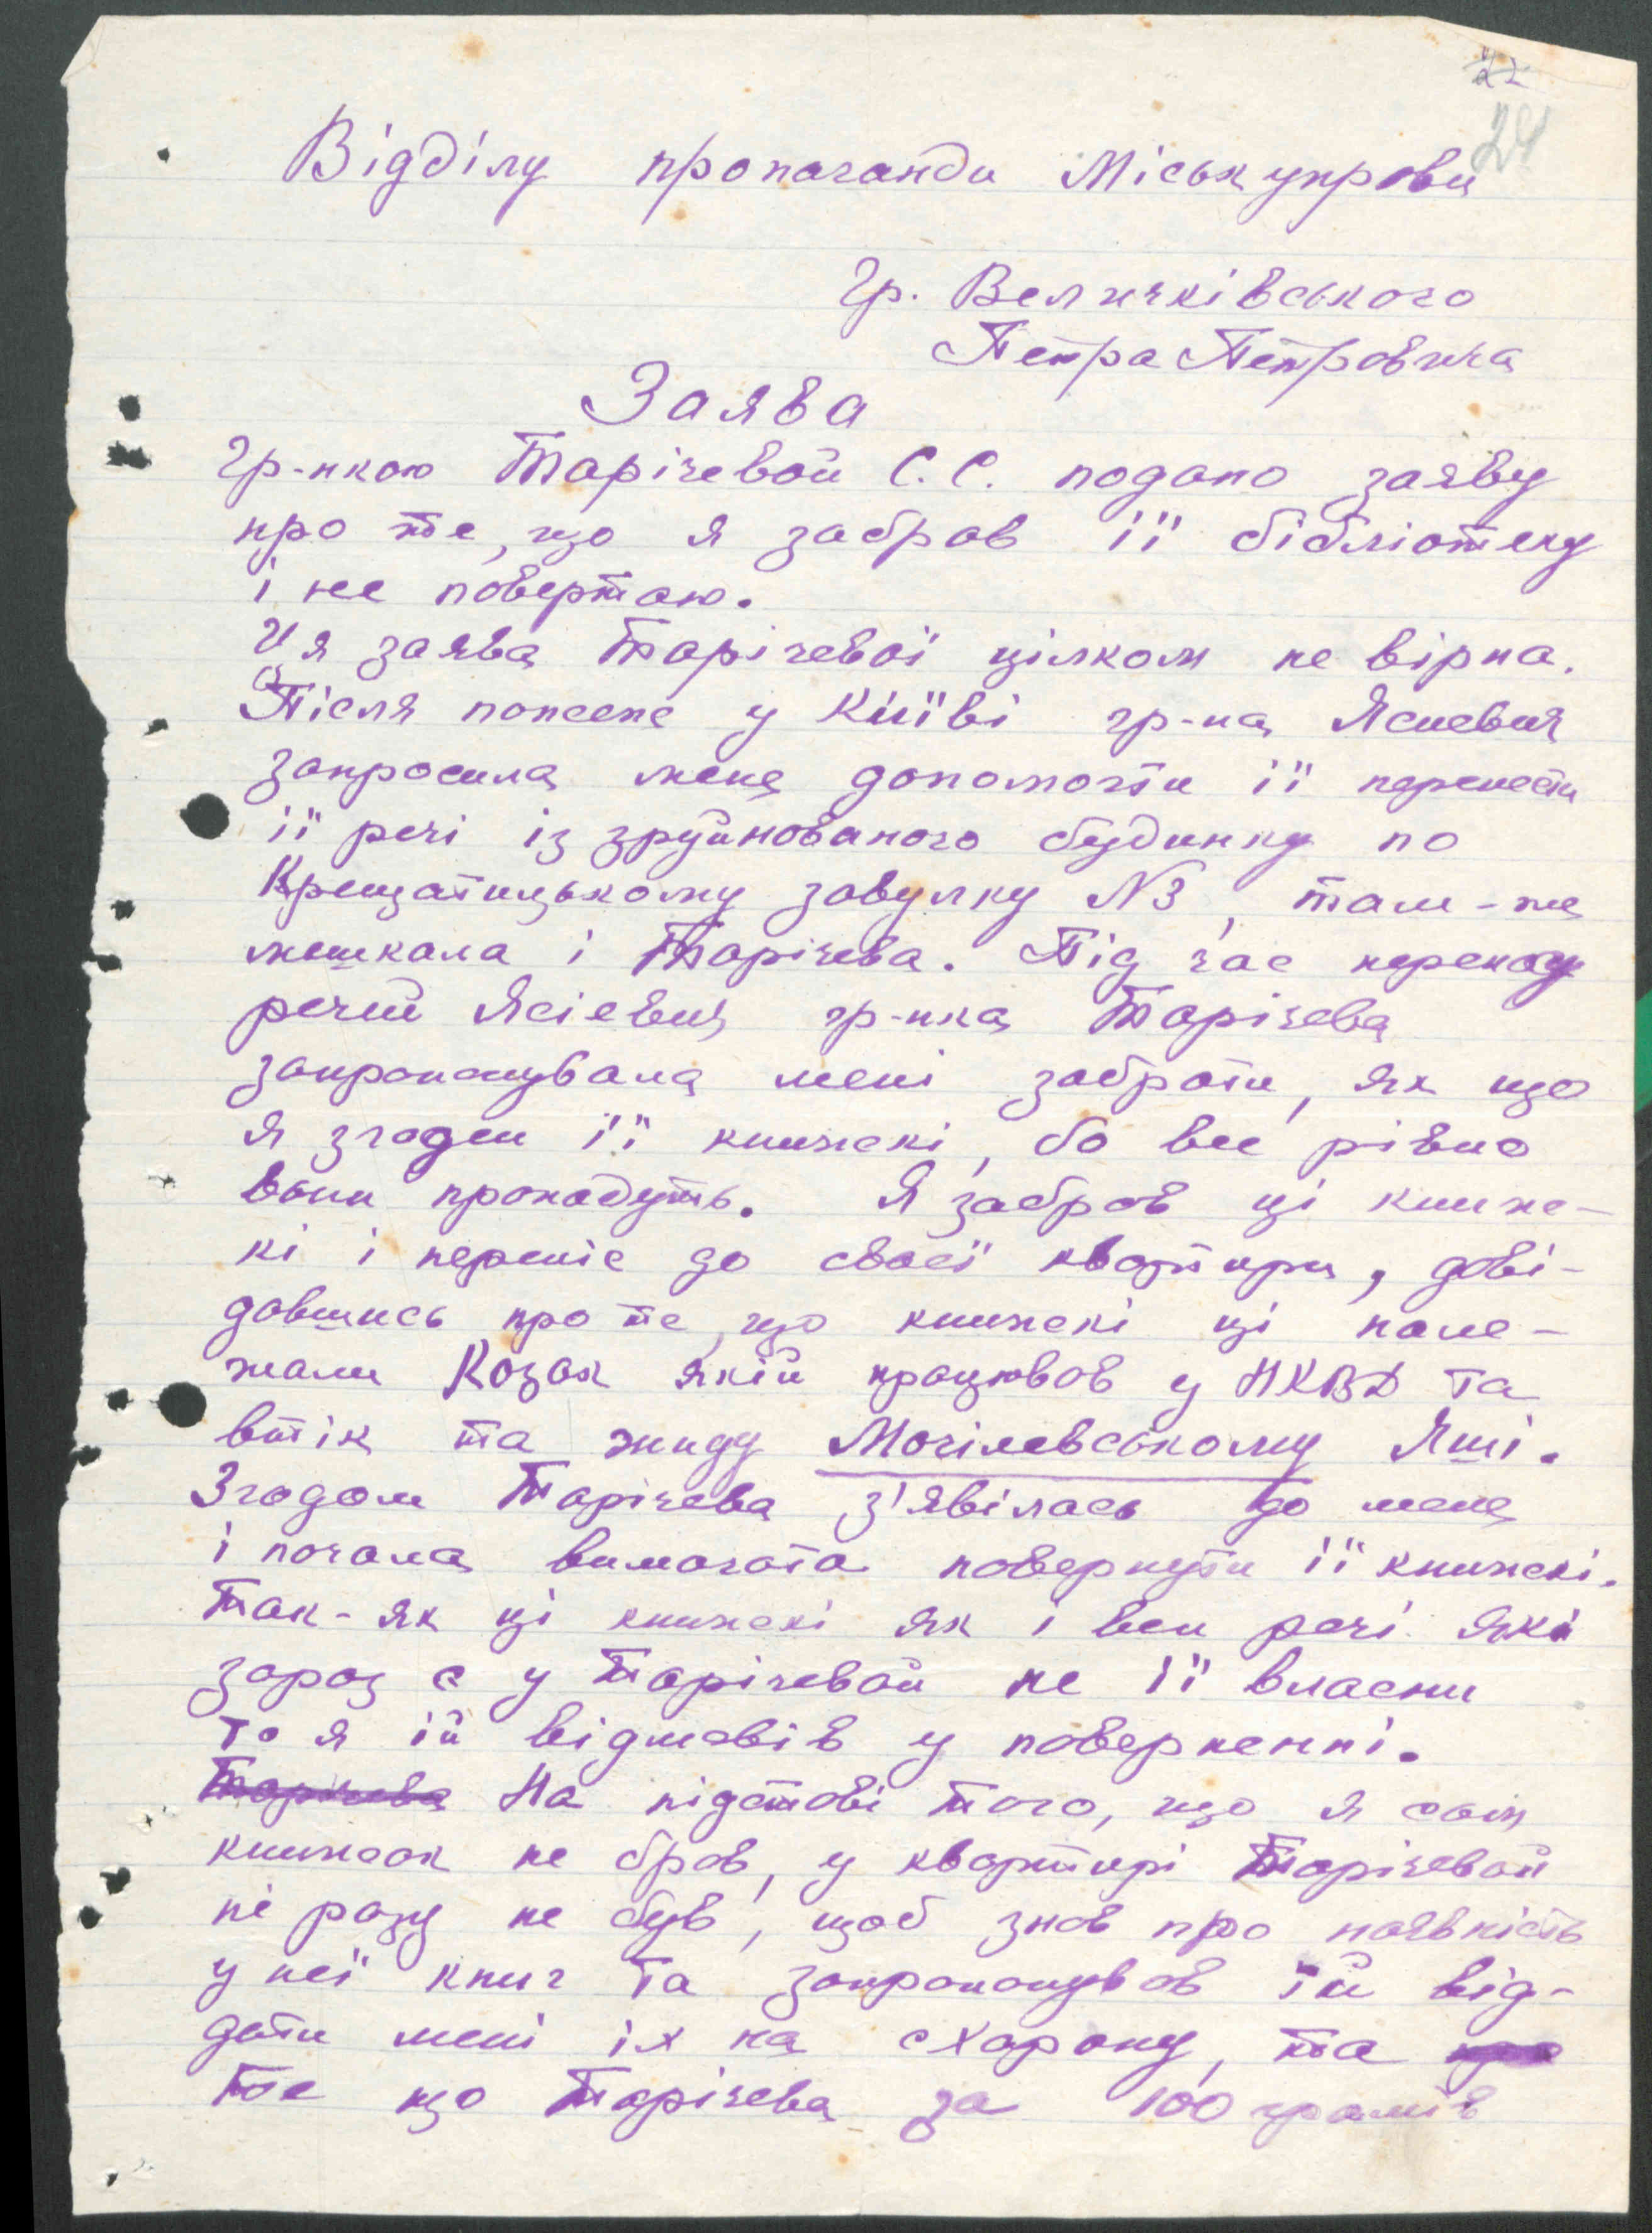 22
24
Відділу пропаганди Міськупрови
Гр. Величківського
Петра Петровича
Заява
Гр-нкою Тарічевой С.С. подано заяву
про те, що я забрав її бібліотеку
і не повертаю.
Ця заява Тарічевої цілком не вірна.
Після пожеже у Київі гр-ка Ясиевич
запросила мене допомогти її перенести
її речі із зруйнованого будинку по
Крещатицькому завулку №3, там-же
мешкала і Тарічева. Під час переносу
речий Ясіевич гр-нка Тарічева
запропонувала мені забрати, як що
я згоден її книжкі, бо все рівно
вони пропадуть. Я забрав ці книж-
кі і переніс до своєї квартири, дові-
давшись про те, що книжкі ці нале-
жали Козак якій працював у НКВД та
втік та жиду Могілевському Яші.
Згодом Тарічева з'явілась до мене
і почала вимагата повернути її книжкі.
Так-як ці книжкі як і вси речі які
зараз є у Тарічевой не її власни
то я їй відмовів у поверненні.
Тарічева На підставі того, що я сам
книжок не брав, у квартирі Тарічевой
ні разу не був, щоб знав про наявність
у неї книг та запропонував їй від-
дати мені іх на схарону, та
те що Тарічева за 100 грамів